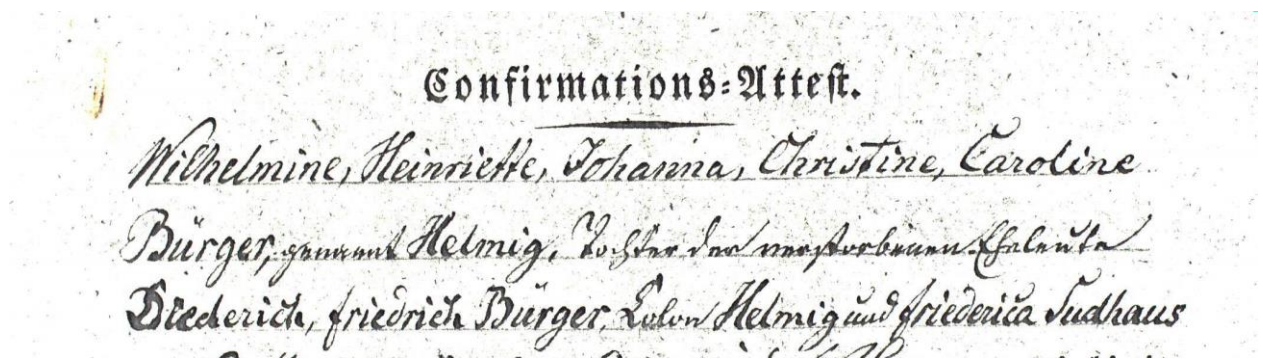 Confirmations=Attest.
Wilhelmine, Heinriette, Johanna, Christine, Caroline
Bürger, genannt Helmig, Tochter der verstorbenen Eheleute
Diederich, friedrich Bürger, Colon Helmig und friederica Sudhaus